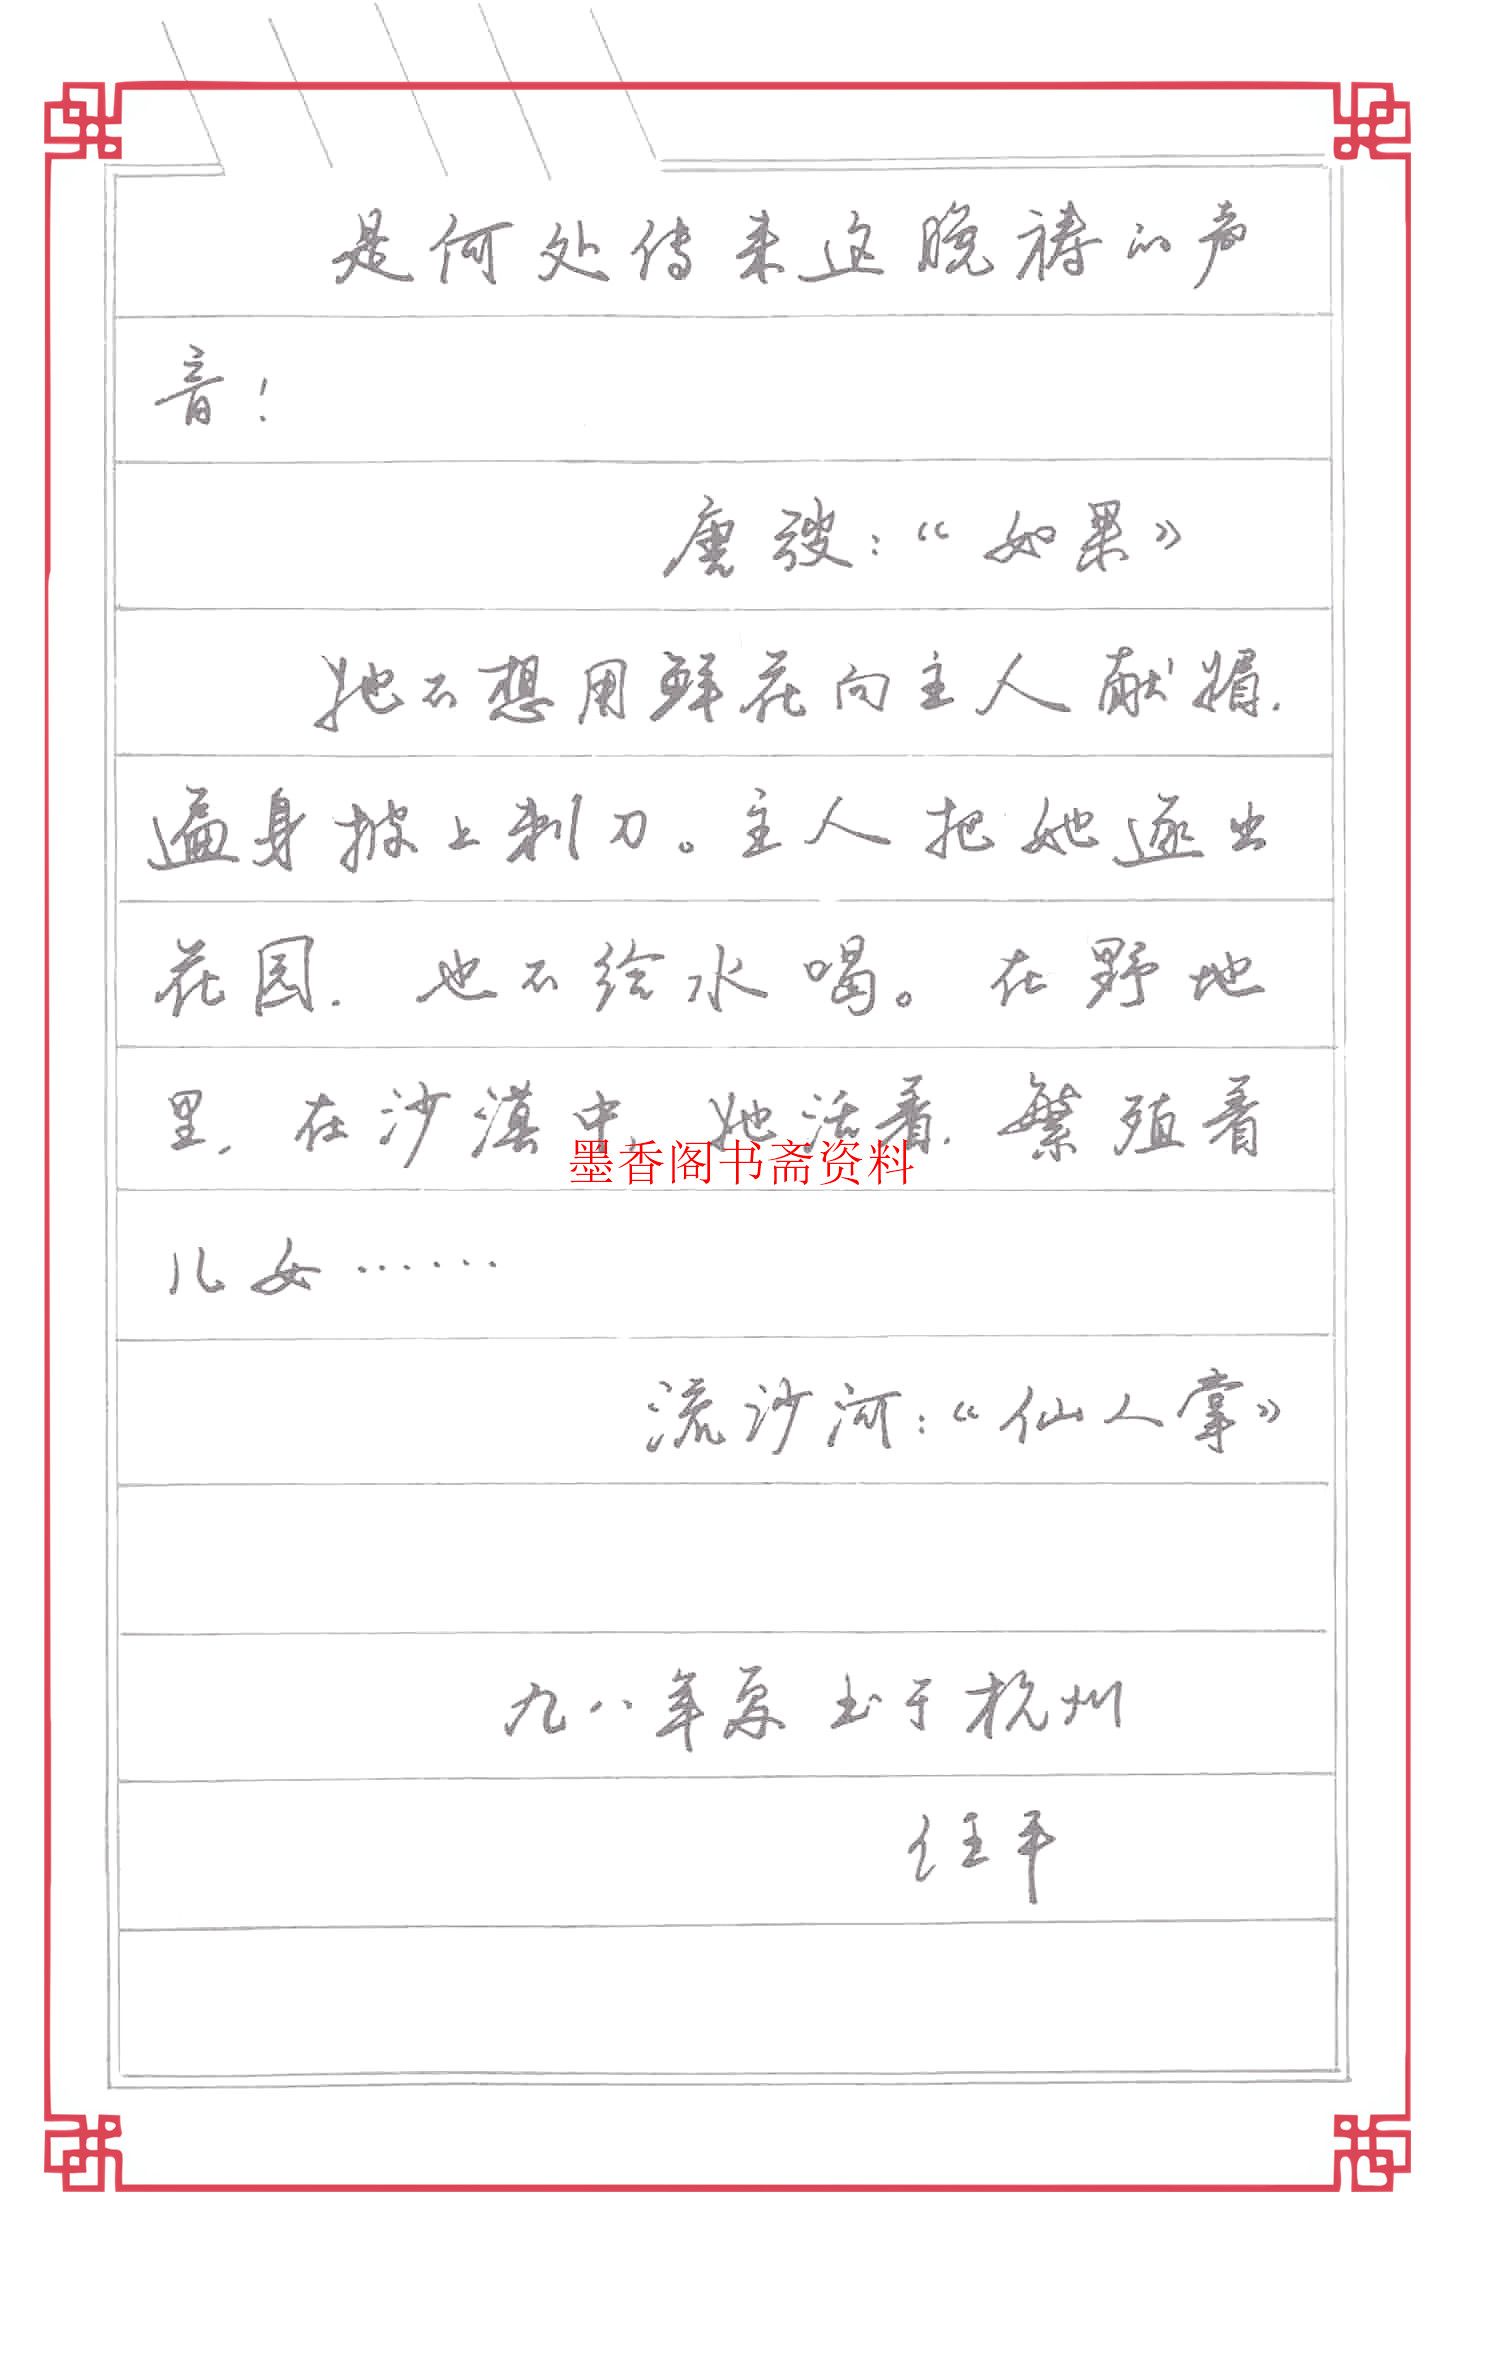 是何处传来这晚祷的声
音！
唐弢：《如果》
她不想用鲜花向主人献媚，
遍身披上刺刀。主人把她逐出
花园，也不给水喝。在野地
里，在沙漠中，她活着，繁殖着
墨香阁书斋资料
儿女……
流沙河：《仙人掌》
九八年夏书于杭州
任平